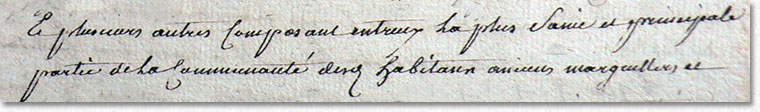 E plusieurs autres Composant entreux La plus Saine et principale
partie de La Communauté desd habitans anciens marguilliers et